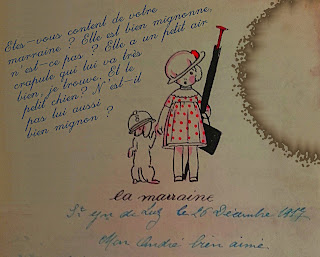 Etes-vous content de votre
marraine ? Elle est bien mignonne,
n'est-ce pas ? Elle a un petit air
crapule qui lui va très
bien, je trouve. Et le
petit chien? N'est-il
pas lui aussi
bien mignon ?
la marraine
St yre de Luz le 26 Décembre 1917
Mon André bien aimé